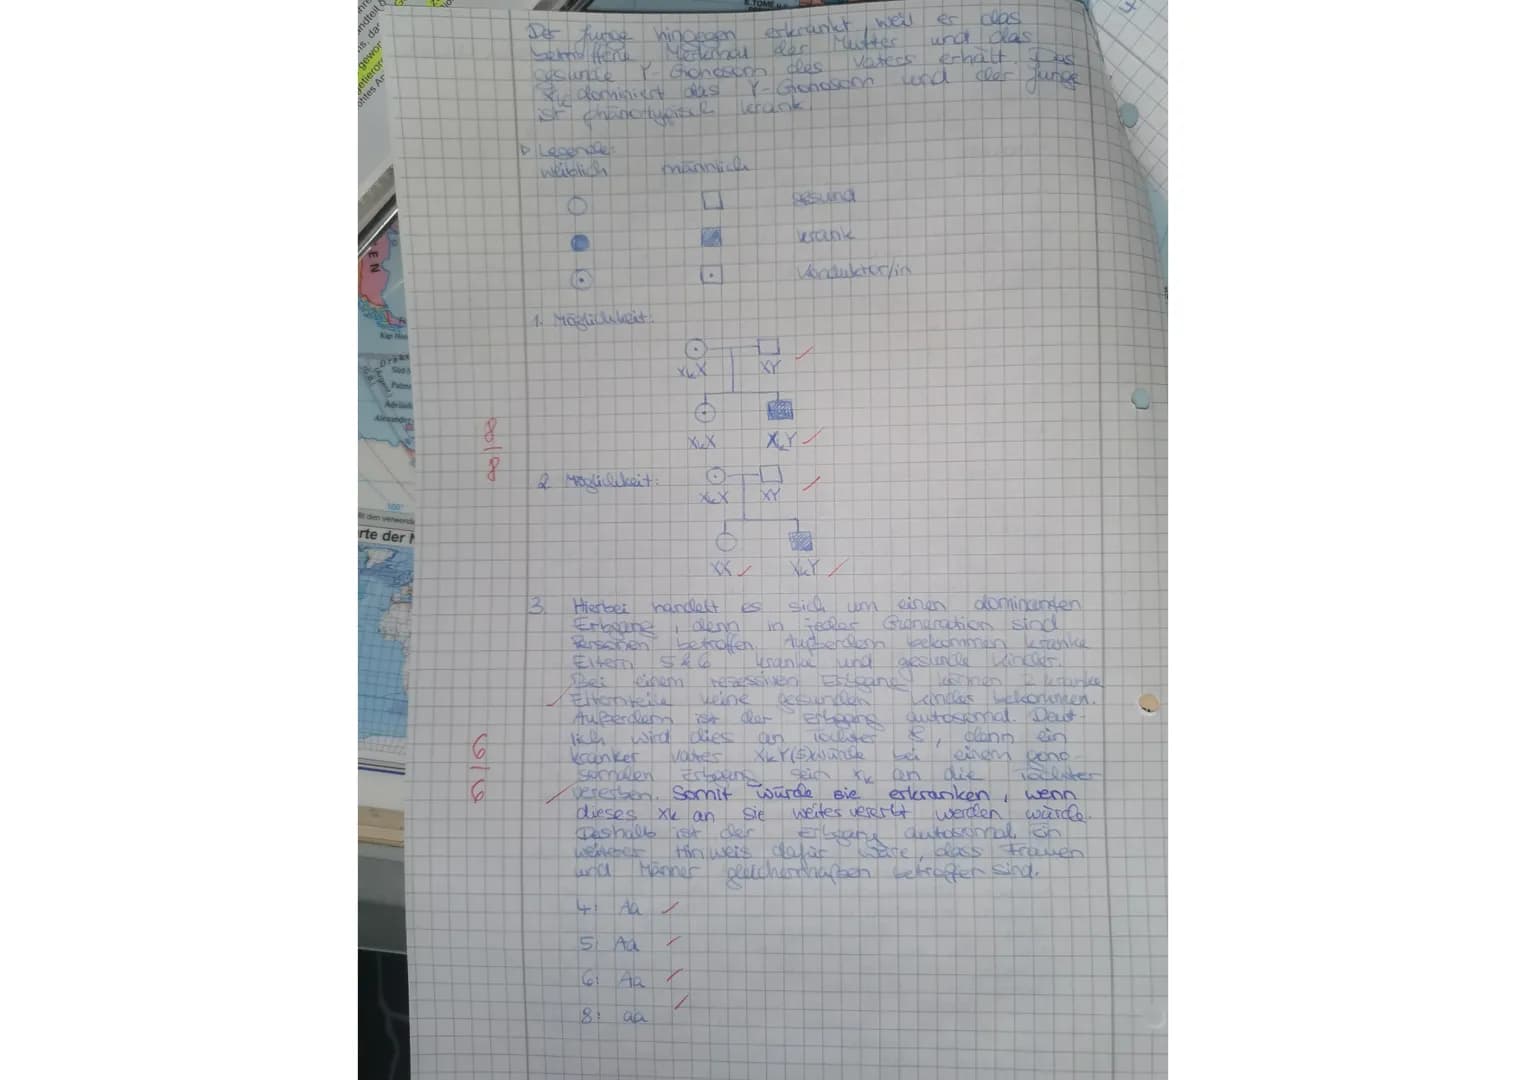 Der Junge hingegen erkrankt, weil er das
betroffene Merkmal der Mutter und das
gesunde Y-Gonosom des Vaters erhält. Das
Xk dominiert das Y-Gonosom und der Junge
ist phänotypisch krank
Legende:
weiblich männlich
gesund
krank
Konduktor/in
1. Möglichkeit:
XkX XY
XkX XkY
8/8
2. Möglichkeit:
XkX XY
XX XkY
3. Hierbei handelt es sich um einen dominanten
Erbgang, denn in jeder Generation sind
Personen betroffen. Außerdem bekommen kranke
Eltern 5 & 6 kranke und gesunde Kinder.
Bei einem rezessiven Erbgang können 2 kranke
Elternteile keine gesunden Kinder bekommen.
Außerdem ist der Erbgang autosomal. Deut-
lich wird dies an Tochter 8, denn ein
kranker Vater XkY(5) würde bei einem gono-
somalen Erbgang sein Xk an die Tochter
vererben. Somit würde sie erkranken, wenn
dieses Xk an sie weitervererbt werden würde.
Deshalb ist der Erbgang autosomal. Ein
weiterer Hinweis dafür wäre, dass Frauen
und Männer gleichermaßen betroffen sind.
6/6
4: Aa
5: Aa
6: Aa
8: aa
EN
rte der